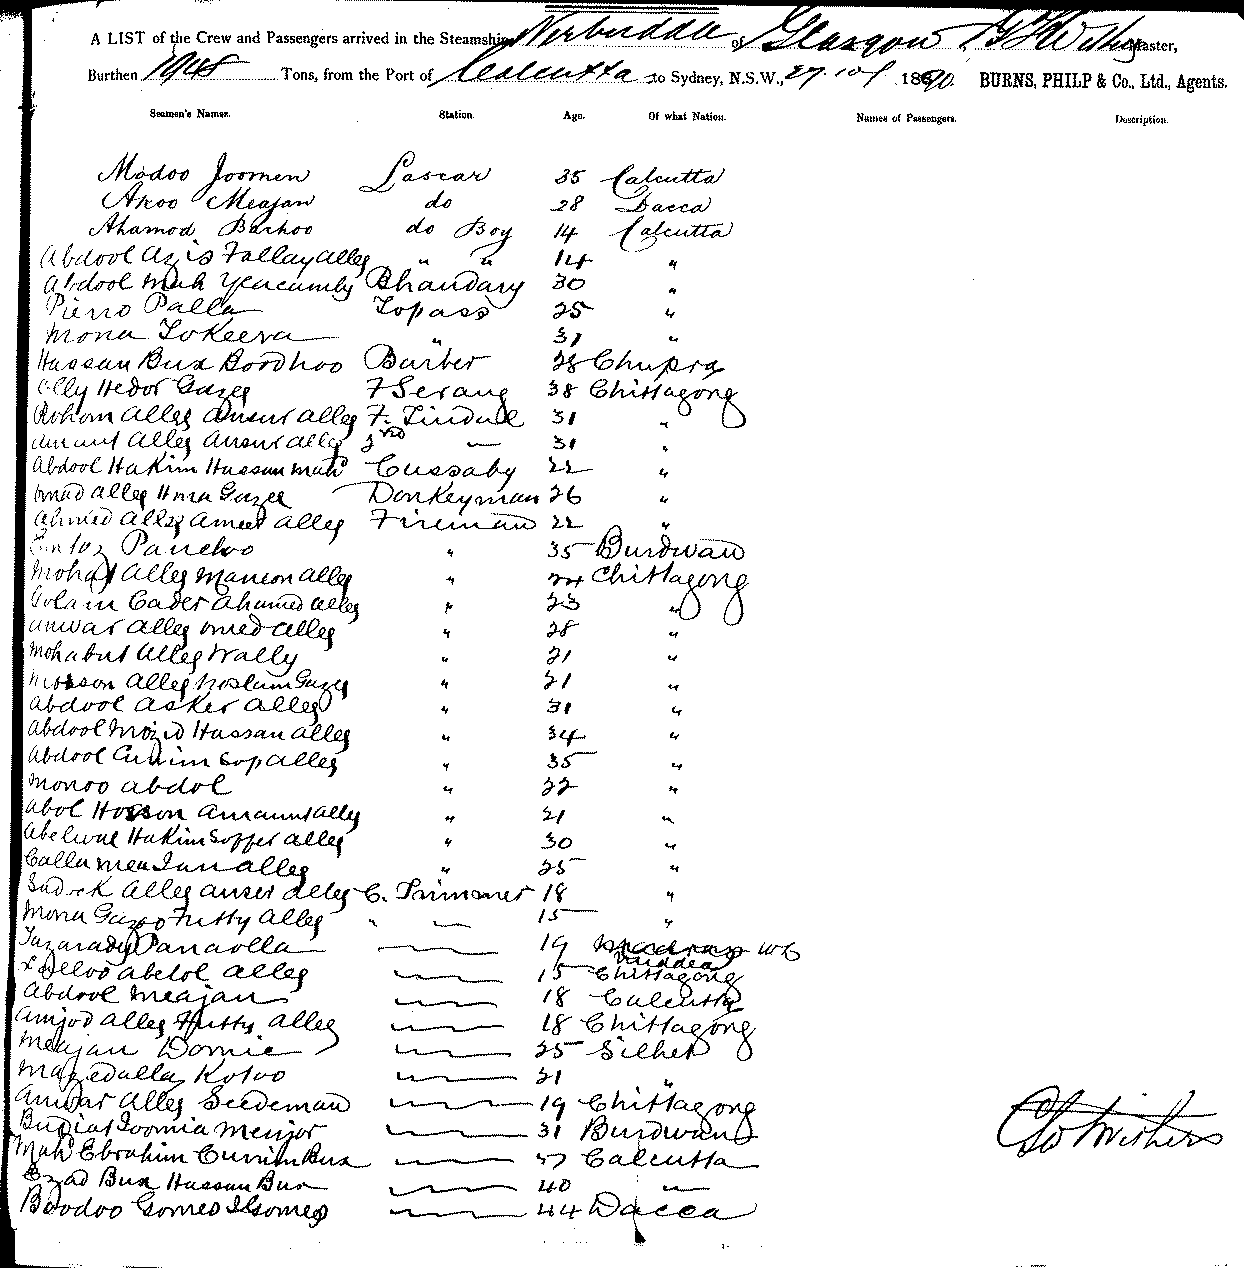 A LIST of the Crew and Passengers arrived in the Steamship Nerbudda of Glasgow Master,
Burthen 1948 Tons, from the Port of Calcutta to Sydney, N.S.W., 27 10 1890. BURNS, PHILP & Co., Ltd., Agents.
Seamen's Names. Station. Age. Of what Nation. Names of Passengers. Description.
Modoo Joomen Lascar 35 Calcutta
Akoo Meajan do 28 Dacca
Ahamod Barhoo do Boy 14 Calcutta
Abdool Azis Fallay alleg " " 14 "
Abdool Mah Yeacumby Bhandary 30 "
Pierro Palla Topass 25 "
Mona Tokeera " 31 "
Hassan Bux Boodhoo Barber 28 Chupra
Ally Hedor Gazee F Serang 38 Chittagong
Rohom Alleg Ansur alleg F. Tindal 31 "
Amant Alleg Ansur alleg 3rd — 31 "
Abdool Hakim Hassan mah Cussaby 22 "
Omad alleg Hma Gazee Donkeyman 26 "
Ahmed Alleg Ameer alleg Fireman 22 "
Panchoo " 35 Burdwan
Mohat Alleg Mancon alleg " 24 Chittagong
Golam Cader Ahamed alleg " 23 "
Anwar alleg omed alleg " 28 "
Mohabut Alleg Wally " 21 "
Mosson Alleg Noslam Gazee " 21 "
Abdool Asker Alleg " 31 "
Abdool Mozid Hassan alleg " 34 "
Abdool Curim Sop alleg " 35 "
Monoo abdol " 22 "
Abol Hosson Amanut alleg " 21 "
Hakim Soffer alleg " 30 "
Calla mea Jan alleg " 25 "
Sadock Alleg anser alleg C. Trimmer 18 "
Mona Gazeo Futty alleg " — 15 "
Panaolla — 19
abdol alleg — 15 Chittagong
Abdool Meajan — 18 Calcutta
Amjod alleg Futty alleg — 18 Chittagong
Meajan Domie — 25 Silhet
Mazedulla Kotoo — 21 "
Anwar alleg Seedeman — 19 Chittagong
Joomia Menjor — 31 Burdwan
Mah Ebrahim Currim Bux — 47 Calcutta
Ezad Bux Hassan Bux — 40 —
Boodoo Gomes J Gomes — 44 Dacca
Withers